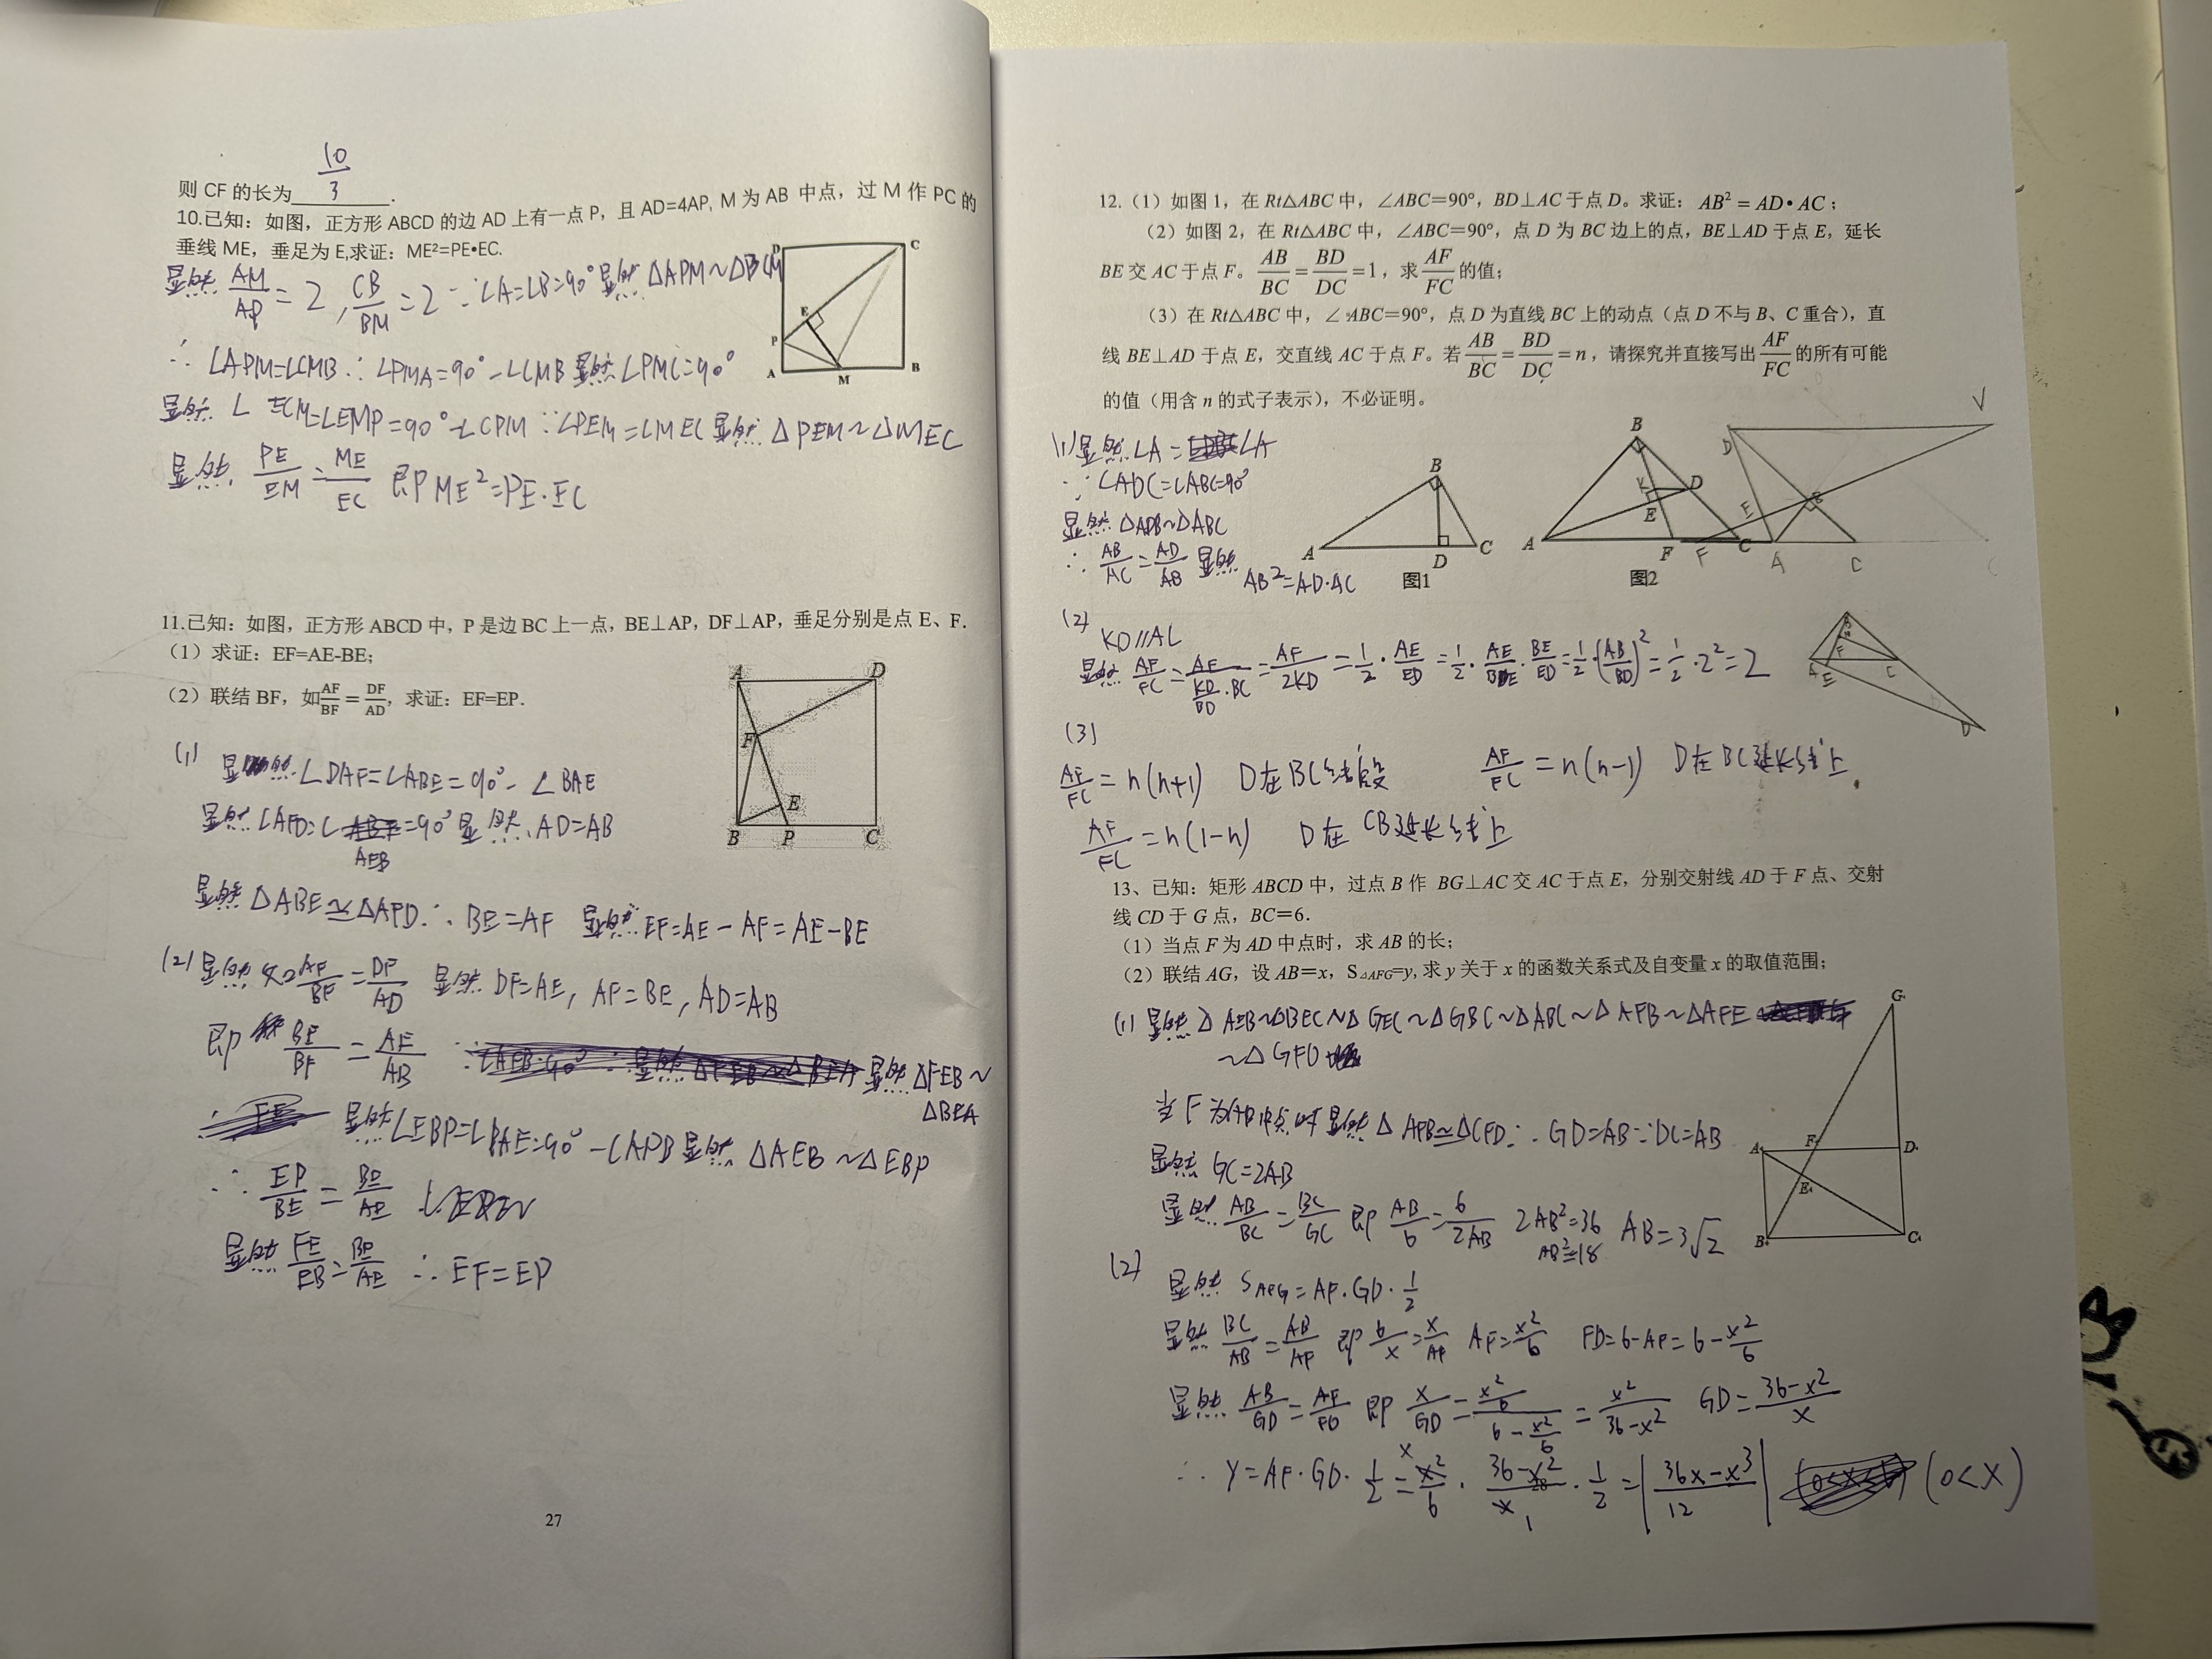 10/3
则 CF 的长为________.
10.已知：如图，正方形 ABCD 的边 AD 上有一点 P，且 AD=4AP, M 为 AB 中点，过 M 作 PC 的
垂线 ME，垂足为 E,求证：ME²=PE•EC.
显然 AM/AP = 2 , CB/BM = 2 ∵ ∠A=∠B=90° 显然 △APM∼△BCM
∴ ∠APM=∠CMB ∴ ∠PMA=90°-∠CMB 显然 ∠PMC=90°
显然 ∠ECM=∠EMP=90°-∠CPM ∵∠PEM=∠MEC 显然 △PEM∼△MEC
显然 PE/EM = ME/EC 即 ME²=PE·EC
D C
E
P
A M B
11.已知：如图，正方形 ABCD 中，P 是边 BC 上一点，BE⊥AP，DF⊥AP，垂足分别是点 E、F.
（1）求证：EF=AE-BE；
（2）联结 BF，如AF/BF = DF/AD，求证：EF=EP.
A D
F
E
B P C
(1) 显然 ∠DAF=∠ABE=90°-∠BAE
显然 ∠AFD=∠AEB=90° 显然 AD=AB
显然 △ABE≃△AFD ∴ BE=AF 显然 EF=AE-AF=AE-BE
(2) 显然 AF/BF = DF/AD 显然 DF=AE, AF=BE, AD=AB
即 BE/BF = AE/AB 显然 △FEB∼
△BEA
显然 ∠EBP=∠BAE=90°-∠APB 显然 △AEB∼△EBP
∴ EP/BE = BE/AE
显然 FE/EB = BE/AE ∴ EF=EP
27
12.（1）如图 1，在 Rt△ABC 中，∠ABC＝90°，BD⊥AC 于点 D。求证：AB²＝AD•AC；
（2）如图 2，在 Rt△ABC 中，∠ABC＝90°，点 D 为 BC 边上的点，BE⊥AD 于点 E，延长
BE 交 AC 于点 F。AB/BC＝BD/DC＝1，求AF/FC的值；
（3）在 Rt△ABC 中，∠ABC＝90°，点 D 为直线 BC 上的动点（点 D 不与 B、C 重合），直
线 BE⊥AD 于点 E，交直线 AC 于点 F。若AB/BC＝BD/DC＝n，请探究并直接写出AF/FC的所有可能
的值（用含 n 的式子表示），不必证明。
B
A D C
图1
B
K D
E
A F C
图2
D V
E B
F A C
A E F C D
(1) 显然 ∠A=∠A
∵ ∠ADC=∠ABC=90°
显然 △ADB∼△ABC
∴ AB/AC = AD/AB 显然 AB²=AD·AC
(2) KD//AC
显然 AF/FC = AF/(KD/BD·BC) = AF/2KD = 1/2·AE/ED = 1/2·AE/BE·BE/ED = 1/2·(AB/BD)² = 1/2·2² = 2
(3)
AF/FC = n(n+1) D在BC线段 AF/FC = n(n-1) D在BC延长线上
AF/FC = n(1-n) D在 CB延长线上
13、已知：矩形 ABCD 中，过点 B 作 BG⊥AC 交 AC 于点 E，分别交射线 AD 于 F 点、交射
线 CD 于 G 点，BC＝6.
（1）当点 F 为 AD 中点时，求 AB 的长；
（2）联结 AG，设 AB＝x，S△AFG=y, 求 y 关于 x 的函数关系式及自变量 x 的取值范围；
(1) 显然 △AEB∼△BEC∼△GEC∼△GBC∼△ABC∼△AFB∼△AFE
∼△GFD
当 F 为AD中点时 显然 △AFB≃△GFD ∴ GD=AB ∵DC=AB
显然 GC=2AB
显然 AB/BC = BC/GC 即 AB/6 = 6/2AB 2AB²=36 AB²=18 AB=3√2
G
A F D
E
B C
(2) 显然 S AFG=AF·GD·1/2
显然 BC/AB = AB/AF 即 6/x = x/AF AF=x²/6 FD=6-AF=6-x²/6
显然 AB/GD = AF/FD 即 x/GD = (x²/6)/(6-x²/6) = x²/(36-x²) GD=(36-x²)/x
∴ Y=AF·GD·1/2 = x²/6 · (36-x²)/x · 1/2 = |(36x-x³)/12| (0<x)